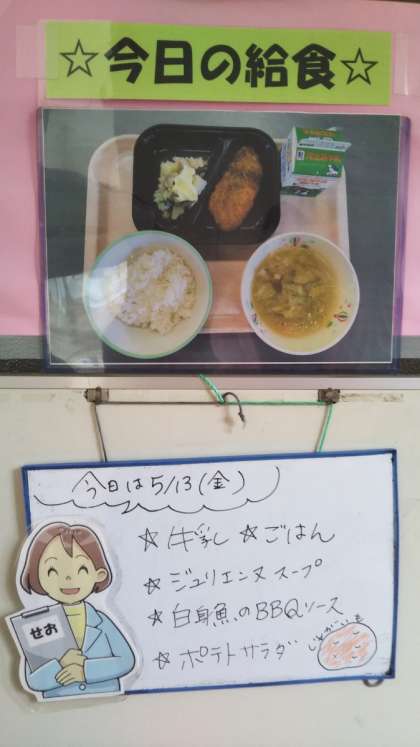 ☆今日の給食☆
今日は5/13(金)
☆牛乳 ☆ごはん
☆ジュリエンヌスープ
☆白身魚のBBQソース
☆ポテトサラダ
じゃがいも
せお